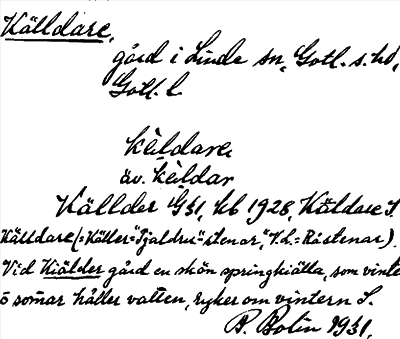 Källdare,
gård i Linde sn, Gotl. s. hd,
Gotl. l.
kèldare
äv. kèldar
Källder G 31, kb 1928, Käldare S.
Källdare (=Käller= "Tjaldru" stenar, "V. L. = Råstenar).
Vid Kiälder gård en skön springkiälla, som vinte
o somar håller vatten, ryker om vintern S.
B. Bolin 1931.